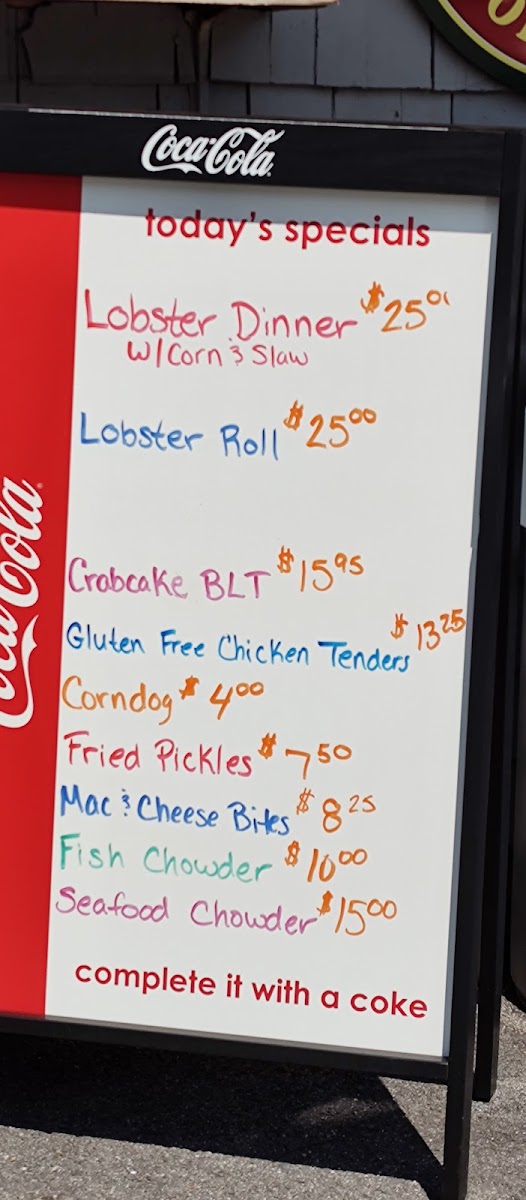 Coca-Cola
today's specials
Lobster Dinner $25.00
w/Corn & Slaw
Lobster Roll $25.00
Crabcake BLT $15.95
Gluten Free Chicken Tenders $13.25
Corndog $4.00
Fried Pickles $7.50
Mac & Cheese Bites $8.25
Fish Chowder $10.00
Seafood Chowder $15.00
complete it with a coke
Coca-Cola